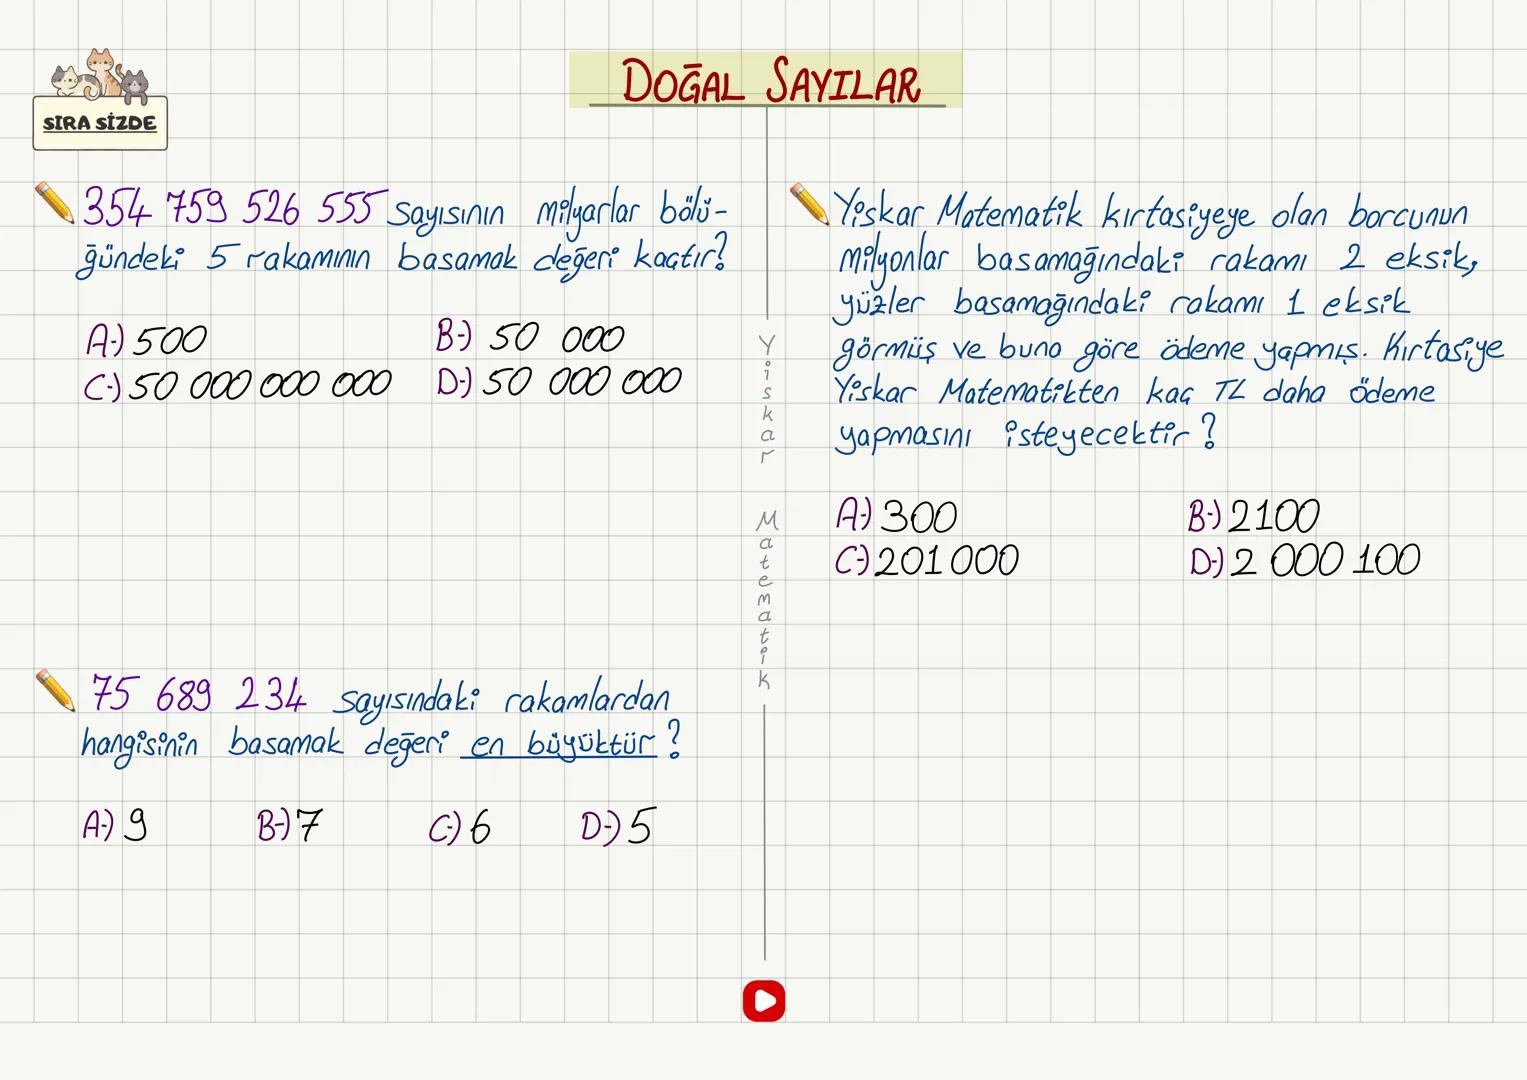 SIRA SİZDE
DOĞAL SAYILAR
354 759 526 555 sayısının milyarlar bölü-
ğündeki 5 rakamının basamak değeri kaçtır?
A-) 500
B-) 50 000
C-) 50 000 000 000
D-) 50 000 000
75 689 234 sayısındaki rakamlardan
hangisinin basamak değeri en büyüktür?
A-) 9
B-) 7
C-) 6
D-) 5
Yiskar Matematik
Yiskar Matematik kırtasiyeye olan borcunun
milyonlar basamağındaki rakamı 2 eksik,
yüzler basamağındaki rakamı 1 eksik
görmüş ve buna göre ödeme yapmış. Kırtasiye
Yiskar Matematikten kaç TL daha ödeme
yapmasını isteyecektir?
A-) 300
B-) 2100
C-) 201 000
D-) 2 000 100